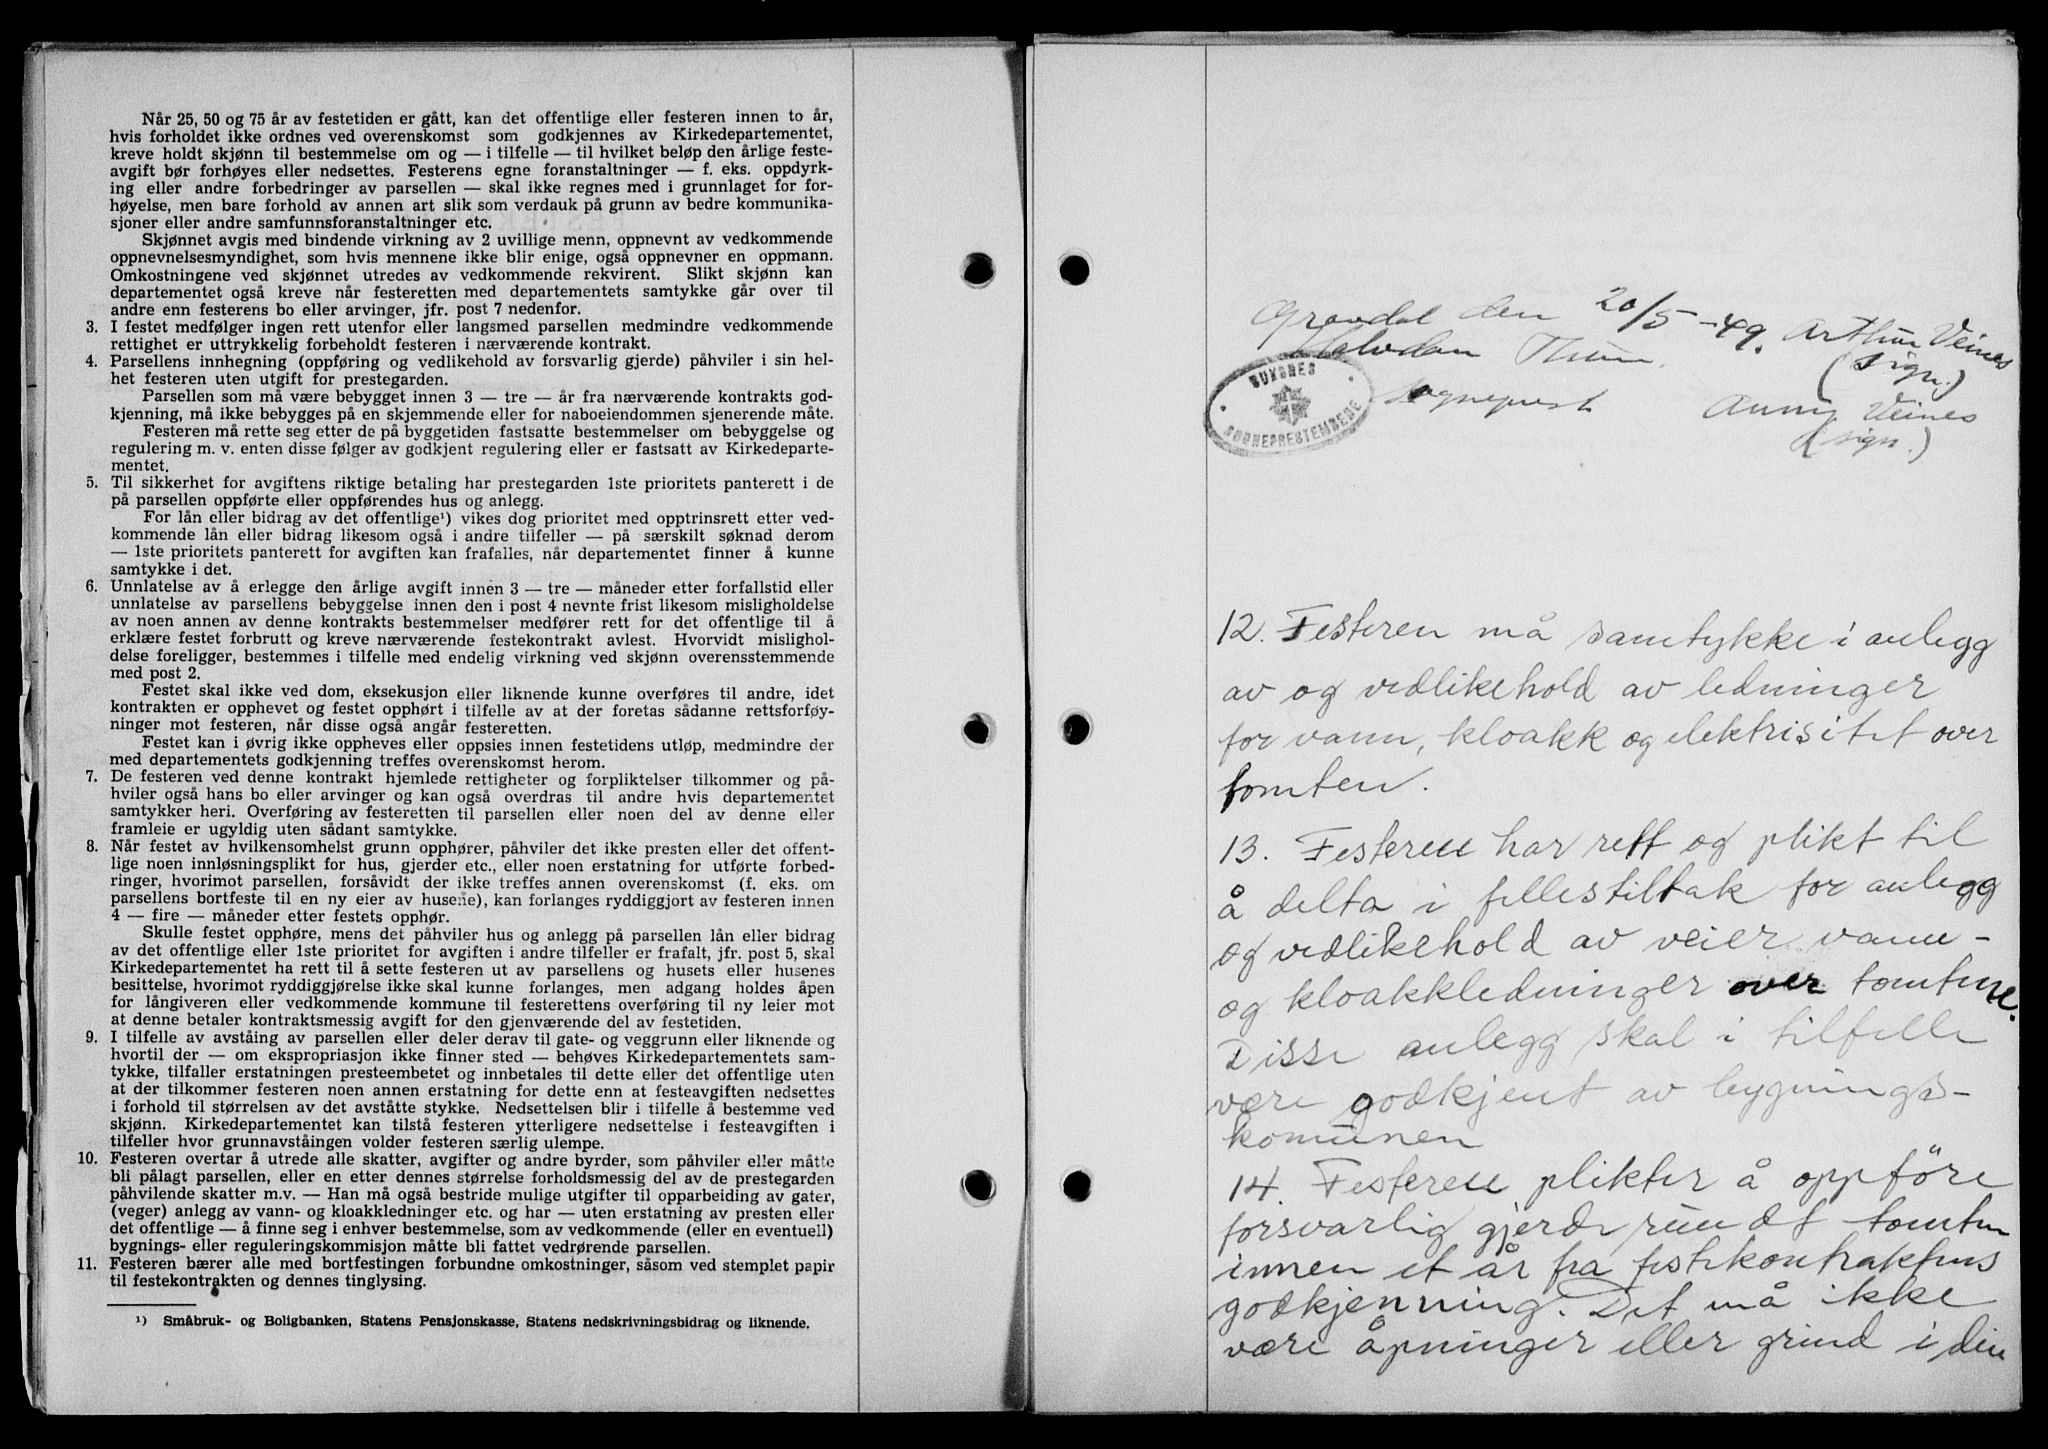 Når 25, 50 og 75 år av festetiden er gått, kan det offentlige eller festeren innen to år,
hvis forholdet ikke ordnes ved overenskomst som godkjennes av Kirkedepartementet,
kreve holdt skjønn til bestemmelse om og — i tilfelle — til hvilket beløp den årlige feste-
avgift bør forhøyes eller nedsettes. Festerens egne foranstaltninger — f. eks. oppdyrk-
ing eller andre forbedringer av parsellen — skal ikke regnes med i grunnlaget for for-
høyelse, men bare forhold av annen art slik som verdauk på grunn av bedre kommunika-
sjoner eller andre samfunnsforanstaltninger etc.
Skjønnet avgis med bindende virkning av 2 uvillige menn, oppnevnt av vedkommende
oppnevnelsesmyndighet, som hvis mennene ikke blir enige, også oppnevner en oppmann.
Omkostningene ved skjønnet utredes av vedkommende rekvirent. Slikt skjønn kan
departementet også kreve når festeretten med departementets samtykke går over til
andre enn festerens bo eller arvinger, jfr. post 7 nedenfor.
3. I festet medfølger ingen rett utenfor eller langsmed parsellen medmindre vedkommende
rettighet er uttrykkelig forbeholdt festeren i nærværende kontrakt.
4. Parsellens innhegning (oppføring og vedlikehold av forsvarlig gjerde) påhviler i sin hel-
het festeren uten utgift for prestegarden.
Parsellen som må være bebygget innen 3 — tre — år fra nærværende kontrakts god-
kjenning, må ikke bebygges på en skjemmende eller for naboeiendommen sjenerende måte.
Festeren må rette seg etter de på byggetiden fastsatte bestemmelser om bebyggelse og
regulering m. v. enten disse følger av godkjent regulering eller er fastsatt av Kirkedeparte-
mentet.
5. Til sikkerhet for avgiftens riktige betaling har prestegarden 1ste prioritets panterett i de
på parsellen oppførte eller oppførendes hus og anlegg.
For lån eller bidrag av det offentlige¹) vikes dog prioritet med opptrinsrett etter ved-
kommende lån eller bidrag likesom også i andre tilfeller — på særskilt søknad derom
— 1ste prioritets panterett for avgiften kan frafalles, når departementet finner å kunne
samtykke i det.
6. Unnlatelse av å erlegge den årlige avgift innen 3 — tre — måneder etter forfallstid eller
unnlatelse av parsellens bebyggelse innen den i post 4 nevnte frist likesom misligholdelse
av noen annen av denne kontrakts bestemmelser medfører rett for det offentlige til å
erklære festet forbrutt og kreve nærværende festekontrakt avlest. Hvorvidt mislighol-
delse foreligger, bestemmes i tilfelle med endelig virkning ved skjønn overensstemmende
med post 2.
Festet skal ikke ved dom, eksekusjon eller liknende kunne overføres til andre, idet
kontrakten er opphevet og festet opphørt i tilfelle av at der foretas sådanne rettsforføy-
ninger mot festeren, når disse også angår festeretten.
Festet kan i øvrig ikke oppheves eller oppsies innen festetidens utløp, medmindre der
med departementets godkjenning treffes overenskomst herom.
7. De festeren ved denne kontrakt hjemlede rettigheter og forpliktelser tilkommer og på-
hviler også hans bo eller arvinger og kan også overdras til andre hvis departementet
samtykker heri. Overføring av festeretten til parsellen eller noen del av denne eller
framleie er ugyldig uten sådant samtykke.
8. Når festet av hvilkensomhelst grunn opphører, påhviler det ikke presten eller det offent-
lige noen innløsningsplikt for hus, gjerder etc., eller noen erstatning for utførte forbed-
ringer, hvorimot parsellen, forsåvidt der ikke treffes annen overenskomst (f. eks. om
parsellens bortfeste til en ny eier av husene), kan forlanges ryddiggjort av festeren innen
4 — fire — måneder etter festets opphør.
Skulle festet opphøre, mens det påhviler hus og anlegg på parsellen lån eller bidrag
av det offentlige eller 1ste prioritet for avgiften i andre tilfeller er frafalt, jfr. post 5, skal
Kirkedepartementet ha rett til å sette festeren ut av parsellens og husets eller husenes
besittelse, hvorimot ryddiggjørelse ikke skal kunne forlanges, men adgang holdes åpen
for långiveren eller vedkommende kommune til festerettens overføring til ny leier mot
at denne betaler kontraktsmessig avgift for den gjenværende del av festetiden.
9. I tilfelle av avståing av parsellen eller deler derav til gate- og veggrunn eller liknende og
hvortil der — om ekspropriasjon ikke finner sted — behøves Kirkedepartementets sam-
tykke, tilfaller erstatningen presteembetet og innbetales til dette eller det offentlige uten
at der tilkommer festeren noen annen erstatning for dette enn at festeavgiften nedsettes
i forhold til størrelsen av det avståtte stykke. Nedsettelsen blir i tilfelle å bestemme ved
skjønn. Kirkedepartementet kan tilstå festeren ytterligere nedsettelse i festeavgiften i
tilfeller hvor grunnavståingen volder festeren særlig ulempe.
10. Festeren overtar å utrede alle skatter, avgifter og andre byrder, som påhviler eller måtte
bli pålagt parsellen, eller en etter dennes størrelse forholdsmessig del av de prestegarden
påhvilende skatter m.v. — Han må også bestride mulige utgifter til opparbeiding av gater,
(veger) anlegg av vann- og kloakkledninger etc. og har — uten erstatning av presten eller
det offentlige — å finne seg i enhver bestemmelse, som av vedkommende (eller en eventuell)
bygnings- eller reguleringskommisjon måtte bli fattet vedrørende parsellen.
11. Festeren bærer alle med bortfestingen forbundne omkostninger, såsom ved stemplet papir
til festekontrakten og dennes tinglysing.
¹) Småbruk- og Boligbanken, Statens Pensjonskasse, Statens nedskrivningsbidrag og liknende.
Gravdal den 20/5-49. Arthur Veines
Halvdan Thune (sign.)
Sogneprest Anny Veines
(sign.)
BUKSNES
SOGNEPRESTEMBEDE
12. Festeren må samtykke i anlegg
av og vedlikehold av ledninger
for vann, kloakk og elektrisitet over
tomten.
13. Festeren har rett og plikt til
å delta i fellestiltak for anlegg
og vedlikehold av veier vann-
og kloakkledninger over tomtene.
Disse anlegg skal i tilfelle
være godkjent av bygnings-
komunen
14. Festeren plikter å oppföre
forsvarlig gjerde rundt tomten
innen et år fra festekontraktens
godkjenning. Det må ikke
være åpninger eller grind i den